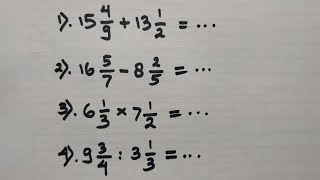 1). 15 4/9 + 13 1/2 = ...
2). 16 5/7 - 8 2/5 = ...
3). 6 1/3 × 7 1/2 = ...
4). 9 3/4 : 3 1/3 = ...